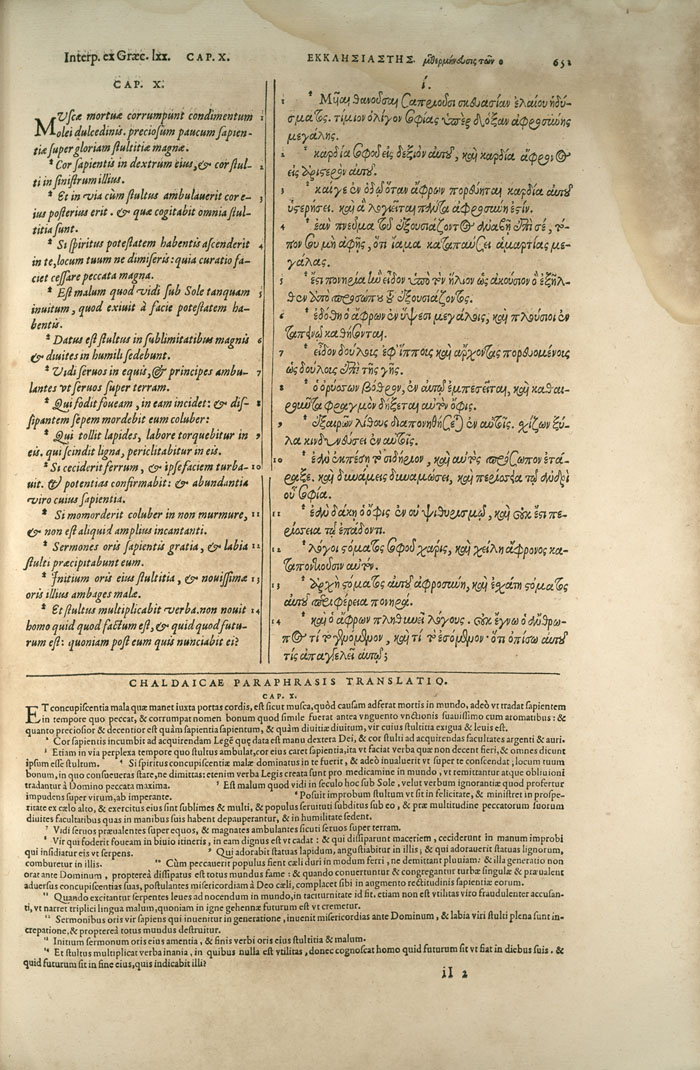 Interp. ex Græc. lxx. CAP. X.
CAP. X.
MUscæ mortuæ corrumpunt condimentum
olei dulcedinis. preciosum paucum sapien-
tiæ super gloriam stultitiæ magnæ.
Cor sapientis in dextrum eius, & cor stul-
ti in sinistrum illius.
Et in via cùm stultus ambulauerit cor e-
ius posterius erit. & quæ cogitabit omnia stul-
titia sunt.
Si spiritus potestatem habentis ascenderit
in te, locum tuum ne dimiseris: quia curatio fa-
ciet cessare peccata magna.
Est malum quod vidi sub Sole tanquam
inuitum, quod exiuit à facie potestatem ha-
bentis.
Datus est stultus in sublimitatibus magnis
& diuites in humili sedebunt.
Vidi seruos in equis, & principes ambu-
lantes vt seruos super terram.
Qui fodit foueam, in eam incidet: & dis-
sipantem sepem mordebit eum coluber:
Qui tollit lapides, labore torquebitur in
eis. qui scindit ligna, periclitabitur in eis.
Si ceciderit ferrum, & ipse faciem turba-
uit. & potentias confirmabit: & abundantia
viro cuius sapientia.
Si momorderit coluber in non murmure,
& non est aliquid amplius incantanti.
Sermones oris sapientis gratia, & labia
stulti præcipitabunt eum.
Initium oris eius stultitia, & nouissima
oris illius ambages malæ.
Et stultus multiplicabit verba. non nouit
homo quid quod factum est, & quid quod futu-
rum est: quoniam post eum quis nunciabit ei?
1
2
3
4
5
6
7
8
9
10
11
12
13
14
ΕΚΚΛΗΣΙΑΣΤΗΣ. μεθερμήνευσις τῶν ο 652
ί.
1 Μῆαι θανοῦσαι σαπριοῦσι σκευασίαν ἐλαίου ἡδύ-
σματος. τίμιον ὀλίγον σοφίας ὑπὲρ δόξαν ἀφροσύνης
μεγάλης.
2 καρδία σοφοῦ εἰς δεξιὸν αὐτοῦ, καὶ καρδία ἄφρονος
εἰς ἀριστερὸν αὐτοῦ.
3 καίγε ἐν ὁδῷ ὅταν ἄφρων πορεύηται καρδία αὐτοῦ
ὑστερήσει. καὶ ἃ λογιεῖται πάντα ἀφροσύνη ἐστίν.
4 ἐὰν πνεῦμα τοῦ ἐξουσιάζοντος ἀναβῇ ἐπὶ σέ, τό-
πον σου μὴ ἀφῇς, ὅτι ἴαμα καταπαύσει ἁμαρτίας με-
γάλας.
5 ἔστι πονηρία ἣν εἶδον ὑπὸ τὸν ἥλιον ὡς ἀκούσιον ὃ ἐξῆλ-
θεν ἀπὸ προσώπου τοῦ ἐξουσιάζοντος.
6 ἐδόθη ὁ ἄφρων ἐν ὕψεσι μεγάλοις, καὶ πλούσιοι ἐν
ταπεινῷ καθήσονται.
7 εἶδον δούλους ἐφ' ἵπποις καὶ ἄρχοντας πορευομένους
ὡς δούλους ἐπὶ τῆς γῆς.
8 ὁ ὀρύσσων βόθρον, ἐν αὐτῷ ἐμπεσεῖται, καὶ καθαι-
ροῦντα φραγμὸν δήξεται αὐτὸν ὄφις.
9 ἐξαίρων λίθους διαπονηθήσεται ἐν αὐτοῖς. σχίζων ξύ-
λα κινδυνεύσει ἐν αὐτοῖς.
10 ἐὰν ἐκπέσῃ τὸ σιδήριον, καὶ αὐτὸς πρόσωπον ἐτά-
ραξε. καὶ δυνάμεις δυναμώσει, καὶ περίσσεια τῷ ἀνδρὶ
οὗ σοφία.
11 ἐὰν δάκῃ ὁ ὄφις ἐν οὐ ψιθυρισμῷ, καὶ οὐκ ἔστι πε-
ρίσσεια τῷ ἐπᾴδοντι.
12 λόγοι στόματος σοφοῦ χάρις, καὶ χείλη ἄφρονος κα-
ταποντιοῦσιν αὐτόν.
13 ἀρχὴ στόματος αὐτοῦ ἀφροσύνη, καὶ ἐσχάτη στόματος
αὐτοῦ περιφέρεια πονηρά.
14 καὶ ὁ ἄφρων πληθυνεῖ λόγους. οὐκ ἔγνω ὁ ἄνθρω-
πος τί τὸ γενόμενον, καὶ τί τὸ ἐσόμενον. ὅτι ὀπίσω αὐτοῦ
τίς ἀπαγγελεῖ αὐτῷ;
CHALDAICAE PARAPHRASIS TRANSLATIO.
CAP. X.
ET concupiscentia mala quæ manet iuxta portas cordis, est sicut musca, quòd causam adferat mortis in mundo, adeò vt tradat sapientem
in tempore quo peccat, & corrumpat nomen bonum quod simile fuerat antea vnguento vnctionis suauissimo cum aromatibus: &
quanto preciosior & decentior est quàm sapientia sapientum, & quàm diuitiæ diuitum, vir cuius stultitia exigua & leuis est.
2 Cor sapientis incumbit ad acquirendam Legẽ quę data est manu dextera Dei, & cor stulti ad acquirendas facultates argenti & auri.
3 Etiam in via perplexa tempore quo stultus ambulat, cor eius caret sapientia, ita vt faciat verba quæ non decent fieri, & omnes dicunt
ipsum esse stultum. 4 Si spiritus concupiscentiæ malæ dominatus in te fuerit, & adeò inualuerit vt super te conscendat; locum tuum
bonum, in quo consueueras stare, ne dimittas: etenim verba Legis creata sunt pro medicamine in mundo, vt remittantur atque obliuioni
tradantur à Domino peccata maxima. 5 Est malum quod vidi in seculo hoc sub Sole, velut verbum ignorantiæ quod profertur
impudens super virum, ab imperante. 6 Posuit improbum stultum vt sit in felicitate, & ministret in prospe-
ritate ex cælo alto, & exercitus eius sint sublimes & multi, & populus seruituti subditus sub eo, & præ multitudine peccatorum suorum
diuites facultatibus quas in manibus suis habent depauperantur, & in humilitate sedent.
7 Vidi seruos præualentes super equos, & magnates ambulantes sicuti seruos super terram.
8 Vir qui foderit foueam in biuio itineris, in eam dignus est vt cadat: & qui dissiparunt maceriem, ceciderunt in manum improbi
qui insidiatur eis vt serpens. 9 Qui adorabit statuas lapidum, angustiabitur in illis; & qui adorauerit statuas lignorum,
comburetur in illis. 10 Cùm peccauerit populus fient cæli duri in modum ferri, ne demittant pluuiam: & illa generatio non
orat ante Dominum, proptereà dissipatus est totus mundus fame: & quando conuertuntur & congregantur turbæ singulæ & præualent
aduersus concupiscentias suas, postulantes misericordiam à Deo cæli, complacet sibi in augmento rectitudinis sapientiæ eorum.
11 Quando excitantur serpentes leues ad nocendum in mundo, in taciturnitate id fit. etiam non est vtilitas viro fraudulenter accusan-
ti, vt narret triplici lingua malum, quoniam in igne gehennæ futurum est vt cremetur.
12 Sermonibus oris vir sapiens qui inuenitur in generatione, inuenit misericordias ante Dominum, & labia viri stulti plena sunt in-
crepatione, & proptereà totus mundus destruitur.
13 Initium sermonum oris eius amentia, & finis verbi oris eius stultitia & malum.
14 Et stultus multiplicat verba inania, in quibus nulla est vtilitas, donec cognoscat homo quid futurum sit vt fiat in diebus suis. &
quid futurum sit in fine eius, quis indicabit illi?
iI 2